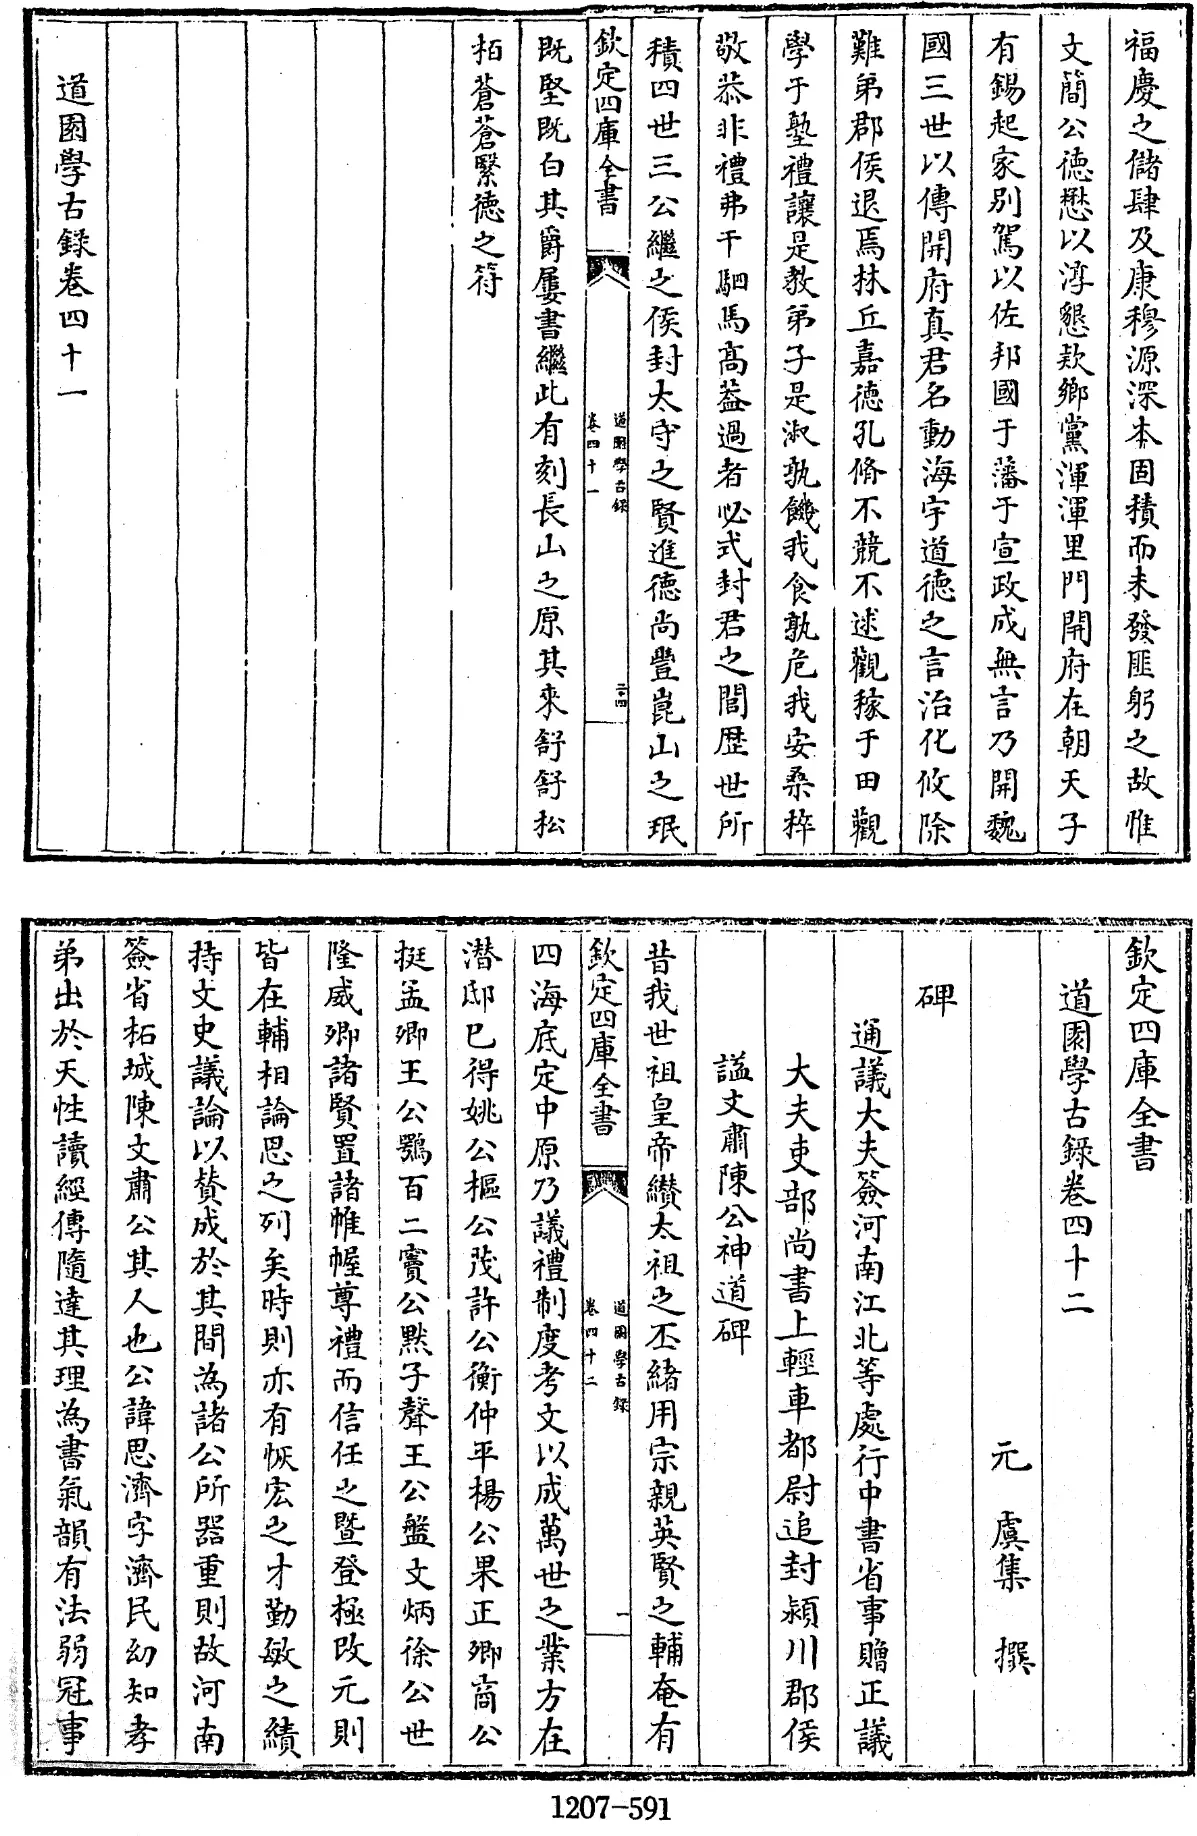 福慶之儲肆及康穆源深本固積而未發匪躬之故惟
文簡公德懋以淳懇欵鄉黨渾渾里門開府在朝天子
有錫起家別駕以佐邦國于藩于宣政成無言乃開魏
國三世以傳開府真君名動海宇道德之言治化攸除
難弟郡侯退焉林丘嘉德孔脩不競不逑觀稼于田觀
學于塾禮讓是教弟子是淑孰饑我食孰危我安桑梓
敬恭非禮弗干駟馬高葢過者必式封君之閭歴世所
積四世三公繼之侯封太守之賢進德尚豐崑山之珉
欽定四庫全書
道園學古録
卷四十一
二十四
既堅既白其爵屢書繼此有刻長山之原其來舒舒松
栢蒼蒼緊德之符
道園學古録卷四十一
欽定四庫全書
道園學古録卷四十二
元 虞集 撰
碑
通議大夫簽河南江北等處行中書省事贈正議
大夫吏部尚書上輕車都尉追封潁川郡侯
諡文肅陳公神道碑
昔我世祖皇帝纉太祖之丕緒用宗親英賢之輔奄有
欽定四庫全書
道園學古録
卷四十二
一
四海底定中原乃議禮制度考文以成萬世之業方在
潜邸已得姚公樞公茂許公衡仲平楊公果正卿商公
挺孟卿王公鶚百二竇公黙子聲王公盤文炳徐公世
隆威卿諸賢置諸帷幄尊禮而信任之暨登極改元則
皆在輔相論思之列矣時則亦有恢宏之才勤敏之績
持文史議論以賛成於其間為諸公所器重則故河南
簽省柘城陳文肅公其人也公諱思濟字濟民幼知孝
弟出於天性讀經傳隨達其理為書氣韻有法弱冠事
1207-591